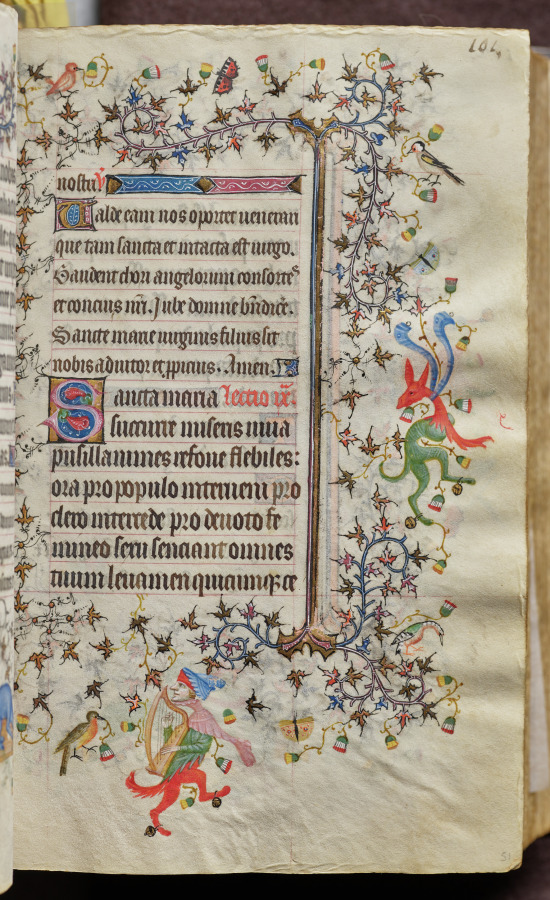 101.
nostri V
Valde eam nos oportet venerari
que tam sancta et intacta est virgo.
Gaudent chori angelorum consortes
et concives nri. Jube domne bndice.
Sancte marie virginis filius sit
nobis adiutor et ppicius. Amen.
Sancta maria Lectio
succurre miseris iuva
pusillanimes refove flebiles:
ora pro populo interveni pro
clero intercede pro devoto fe
mineo sexu senciant omnes
tuum levamen quicumqz ce